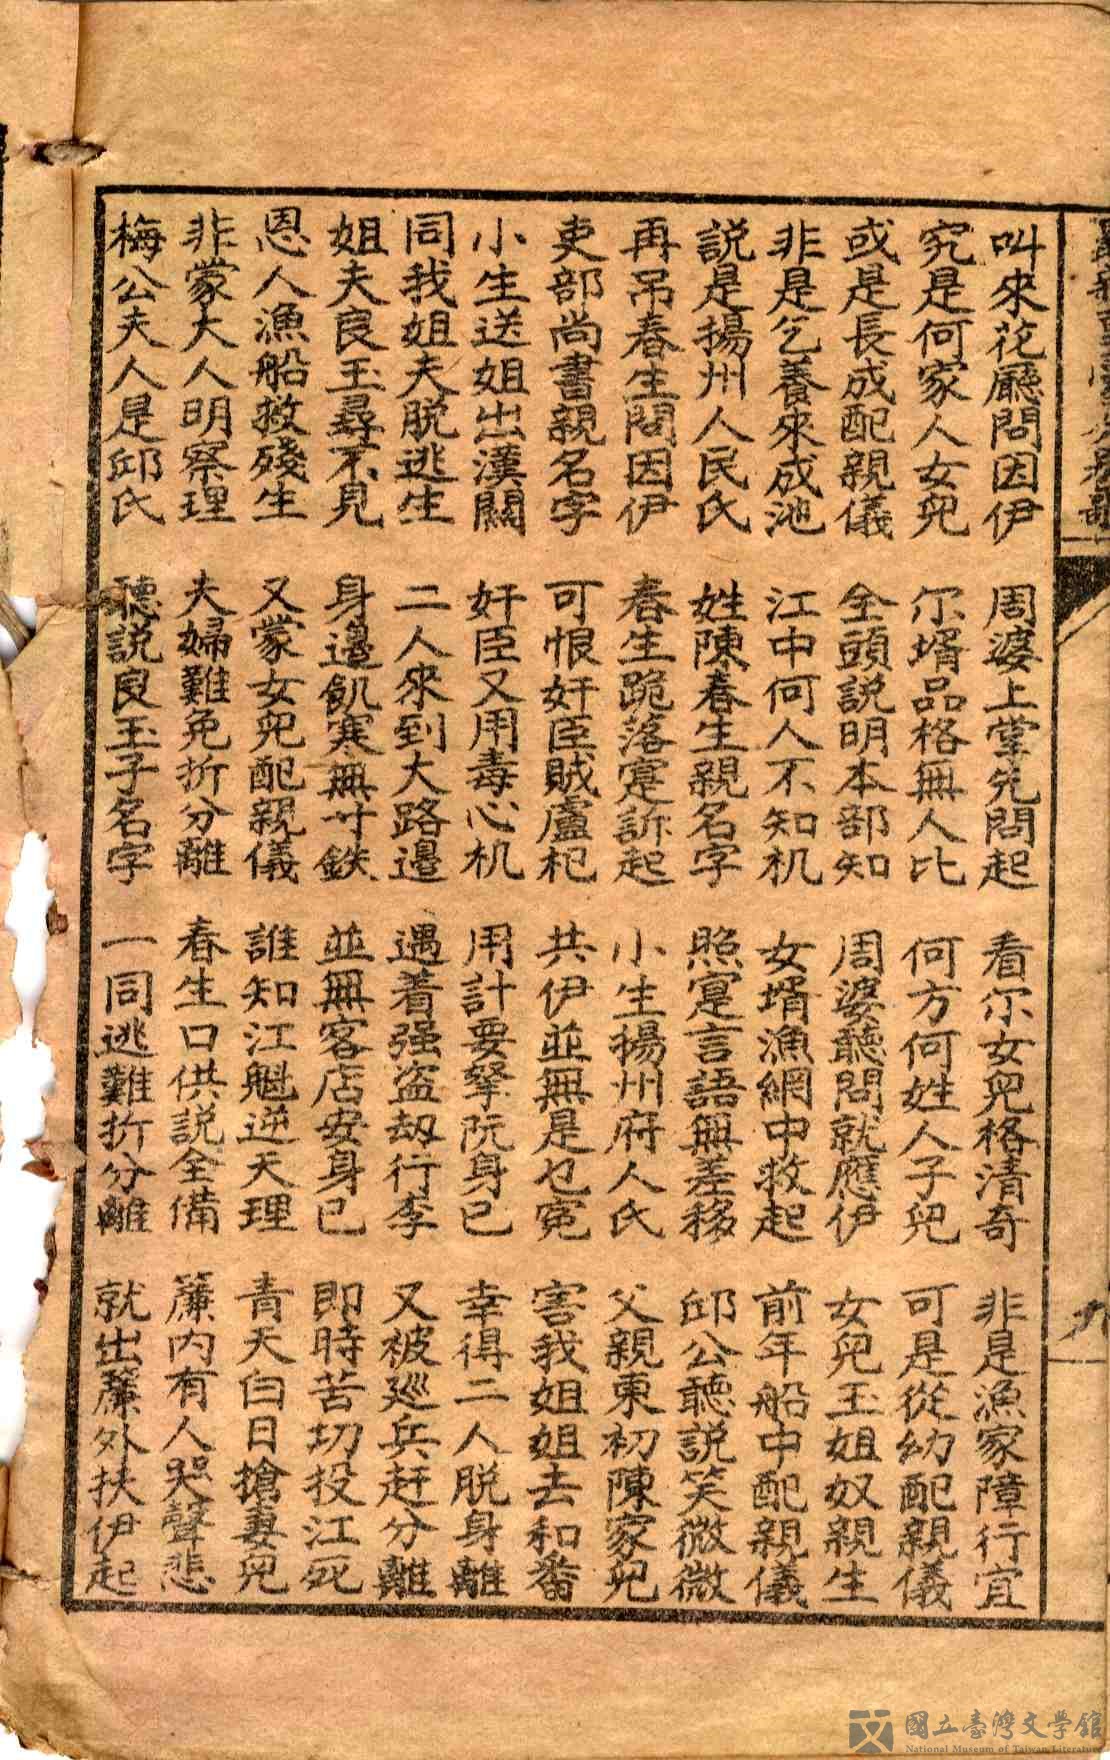 叫來花廳問因伊　周婆上堂先問起　看尔女兒格清奇　非是漁家障行宜
究是何家人女兒　尔壻品格無人比　何方何姓人子兒　可是從幼配親儀
或是長成配親儀　全頭說明本部知　周婆聽問就應伊　女兒玉姐奴親生
非是乞養來成池　江中何人不知机　女壻漁網中救起　前年船中配親儀
說是揚州人民氏　姓陳春生親名字　照寔言語無差移　邱公聽說笑微微
再吊春生問因伊　春生跪落寔訴起　小生揚州府人氏　父親東初陳家兒
吏部尚書親名字　可恨奸臣賊盧杞　共伊並無是乜冤　害我姐姐去和番
小生送姐出漢關　奸臣又用毒心机　用計要拏阮身己　幸得二人脫身離
同我姐夫脫逃生　二人來到大路邊　遇着强盗刼行李　又被巡兵赶分離
姐夫良玉尋不見　身邊飢寒無寸鉄　並無客店安身己　即時苦切投江死
恩人漁船救殘生　又蒙女兒配親儀　誰知江魁逆天理　青天白日搶妻兒
非蒙大人明察理　夫婦難免折分離　春生口供說全備　簾內有人哭聲悲
梅公夫人是邱氏　聽說良玉子名字　一同逃難折分離　就出簾外扶伊起
九
國立臺灣文學館
National Museum of Taiwan Literature